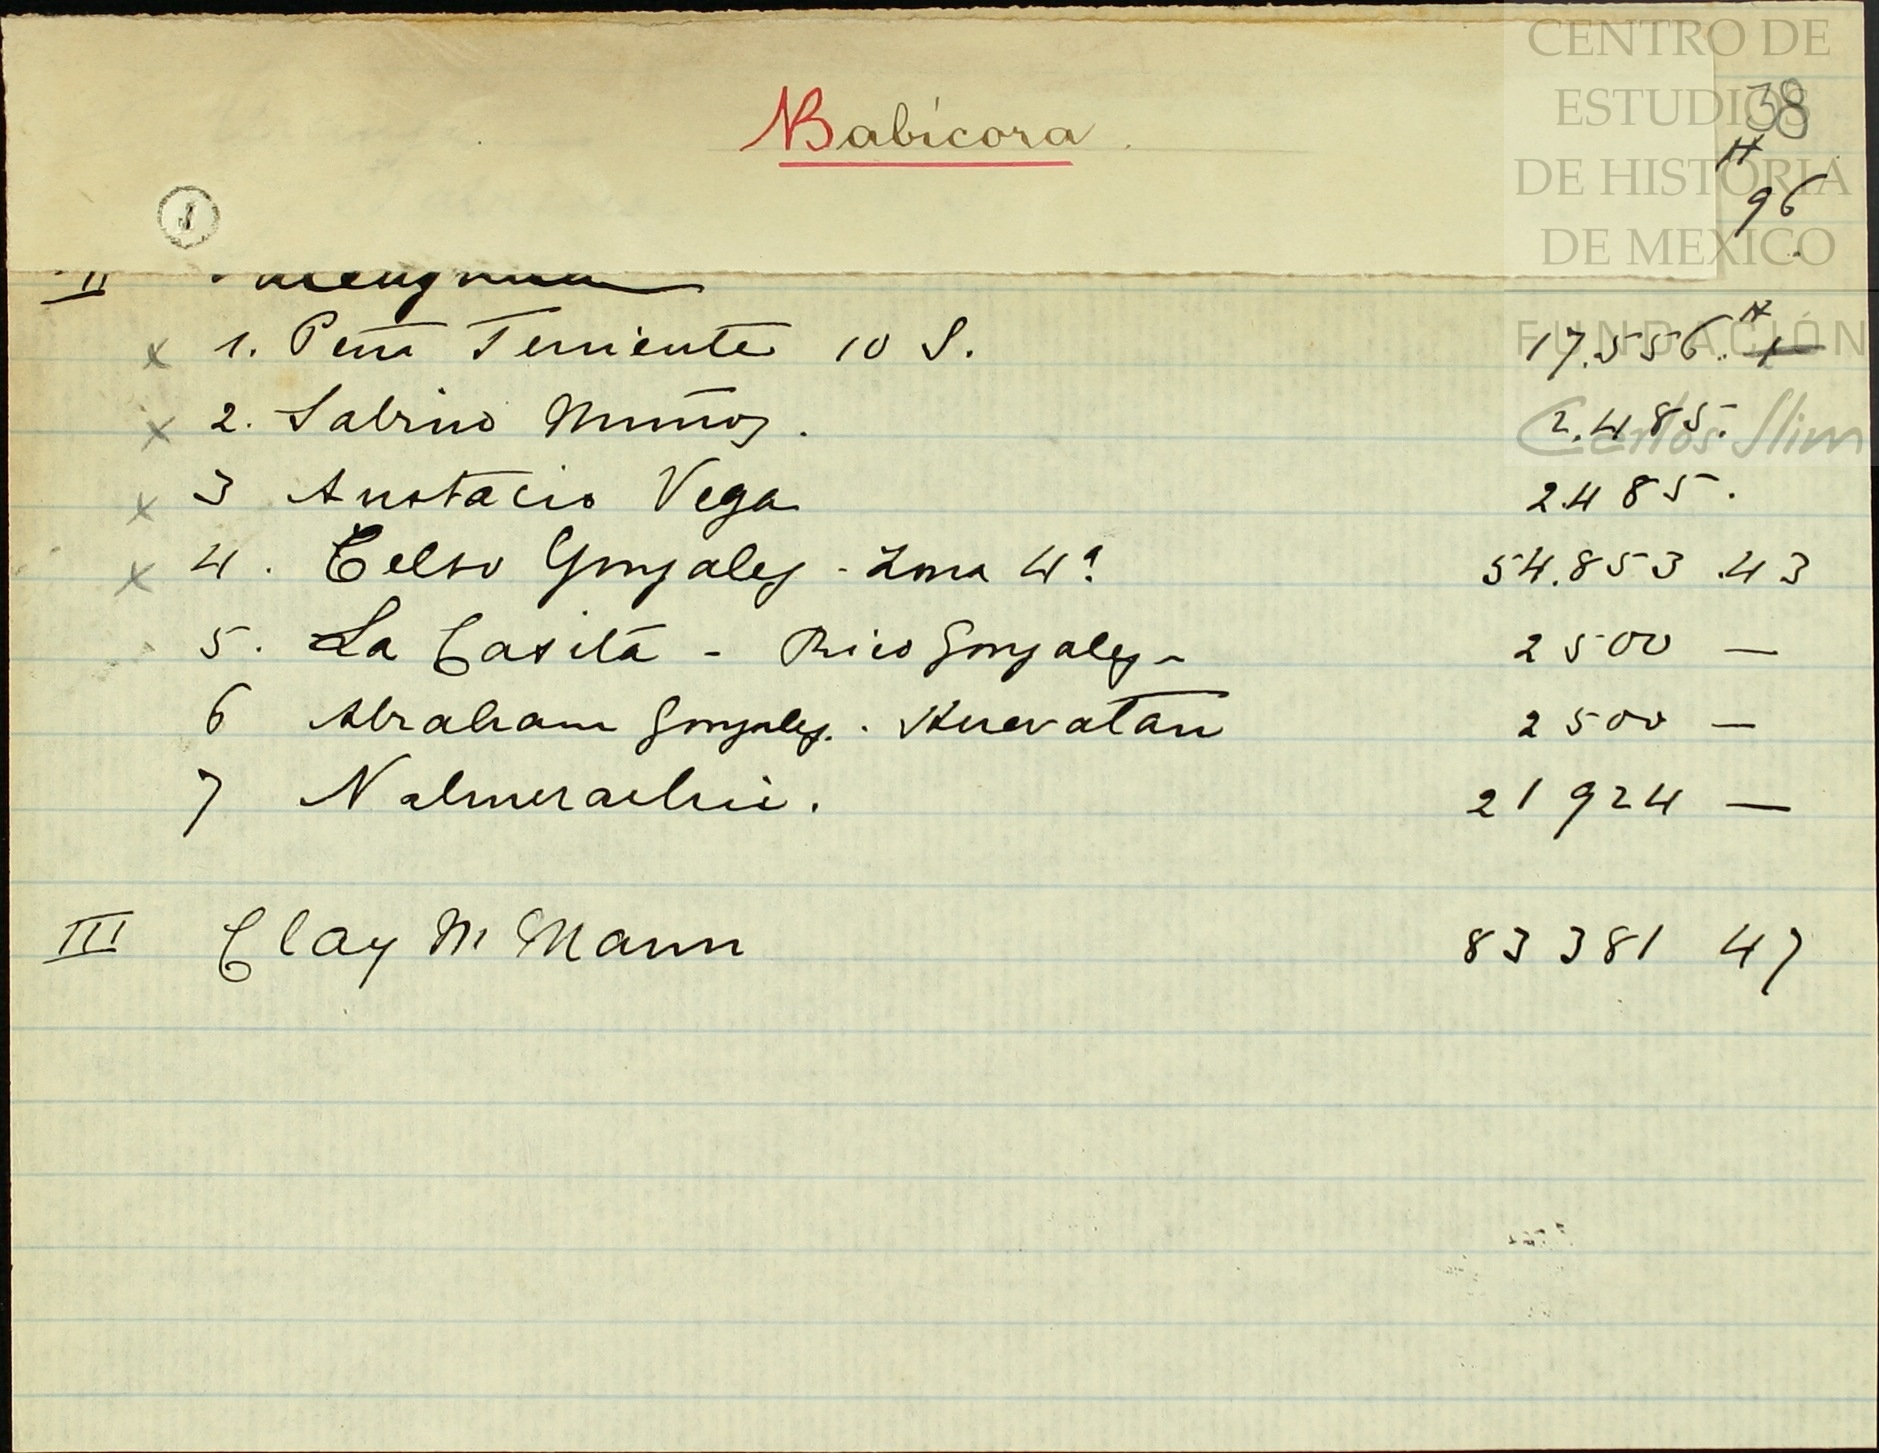 CENTRO DE
ESTUDIOS
DE HISTORIA
DE MEXICO
FUNDACIÓN
Carlos Slim
38
Babícora.
96
II
x 1. Peña Terriente 10 S. 17.556.
x 2. Sabino Muñoz. 2.485.
x 3 Anstacio Vega 2485.
x 4. Celso Gonzalez - Zona 4ª 54.853.43
5. La Casita - Rico Gonzalez - 2500 —
6 Abraham Gonzalez. 2500 —
7 21924 —
III Clay M Mann 83381 47